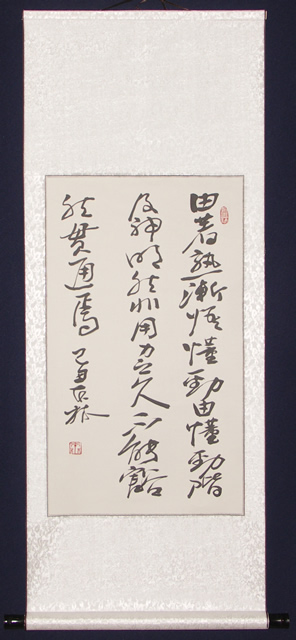 由著熟漸悟懂勁由懂勁階
及神明然非用力之久不能豁
然貫通焉 己丑